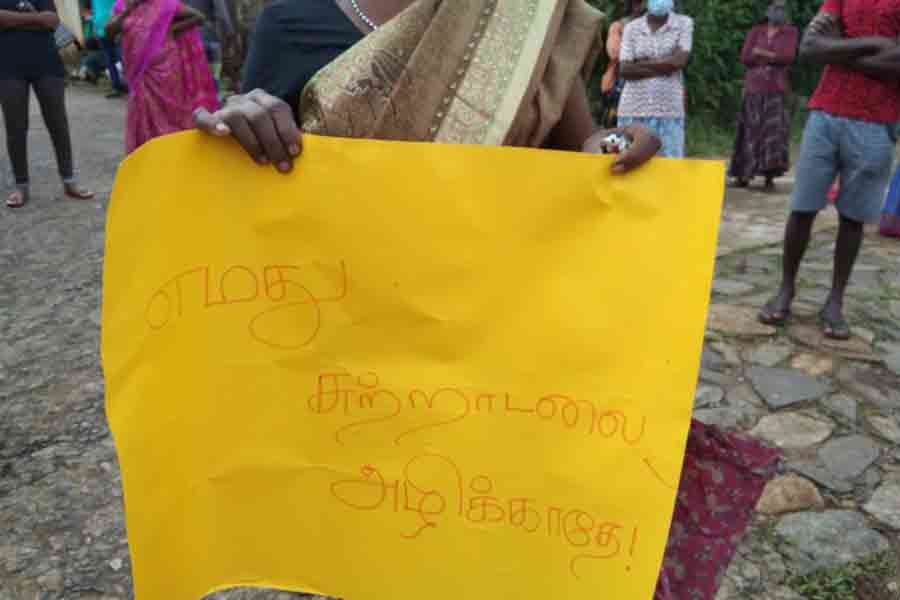 எமது
சுற்றாடலை
அழிக்காதே!